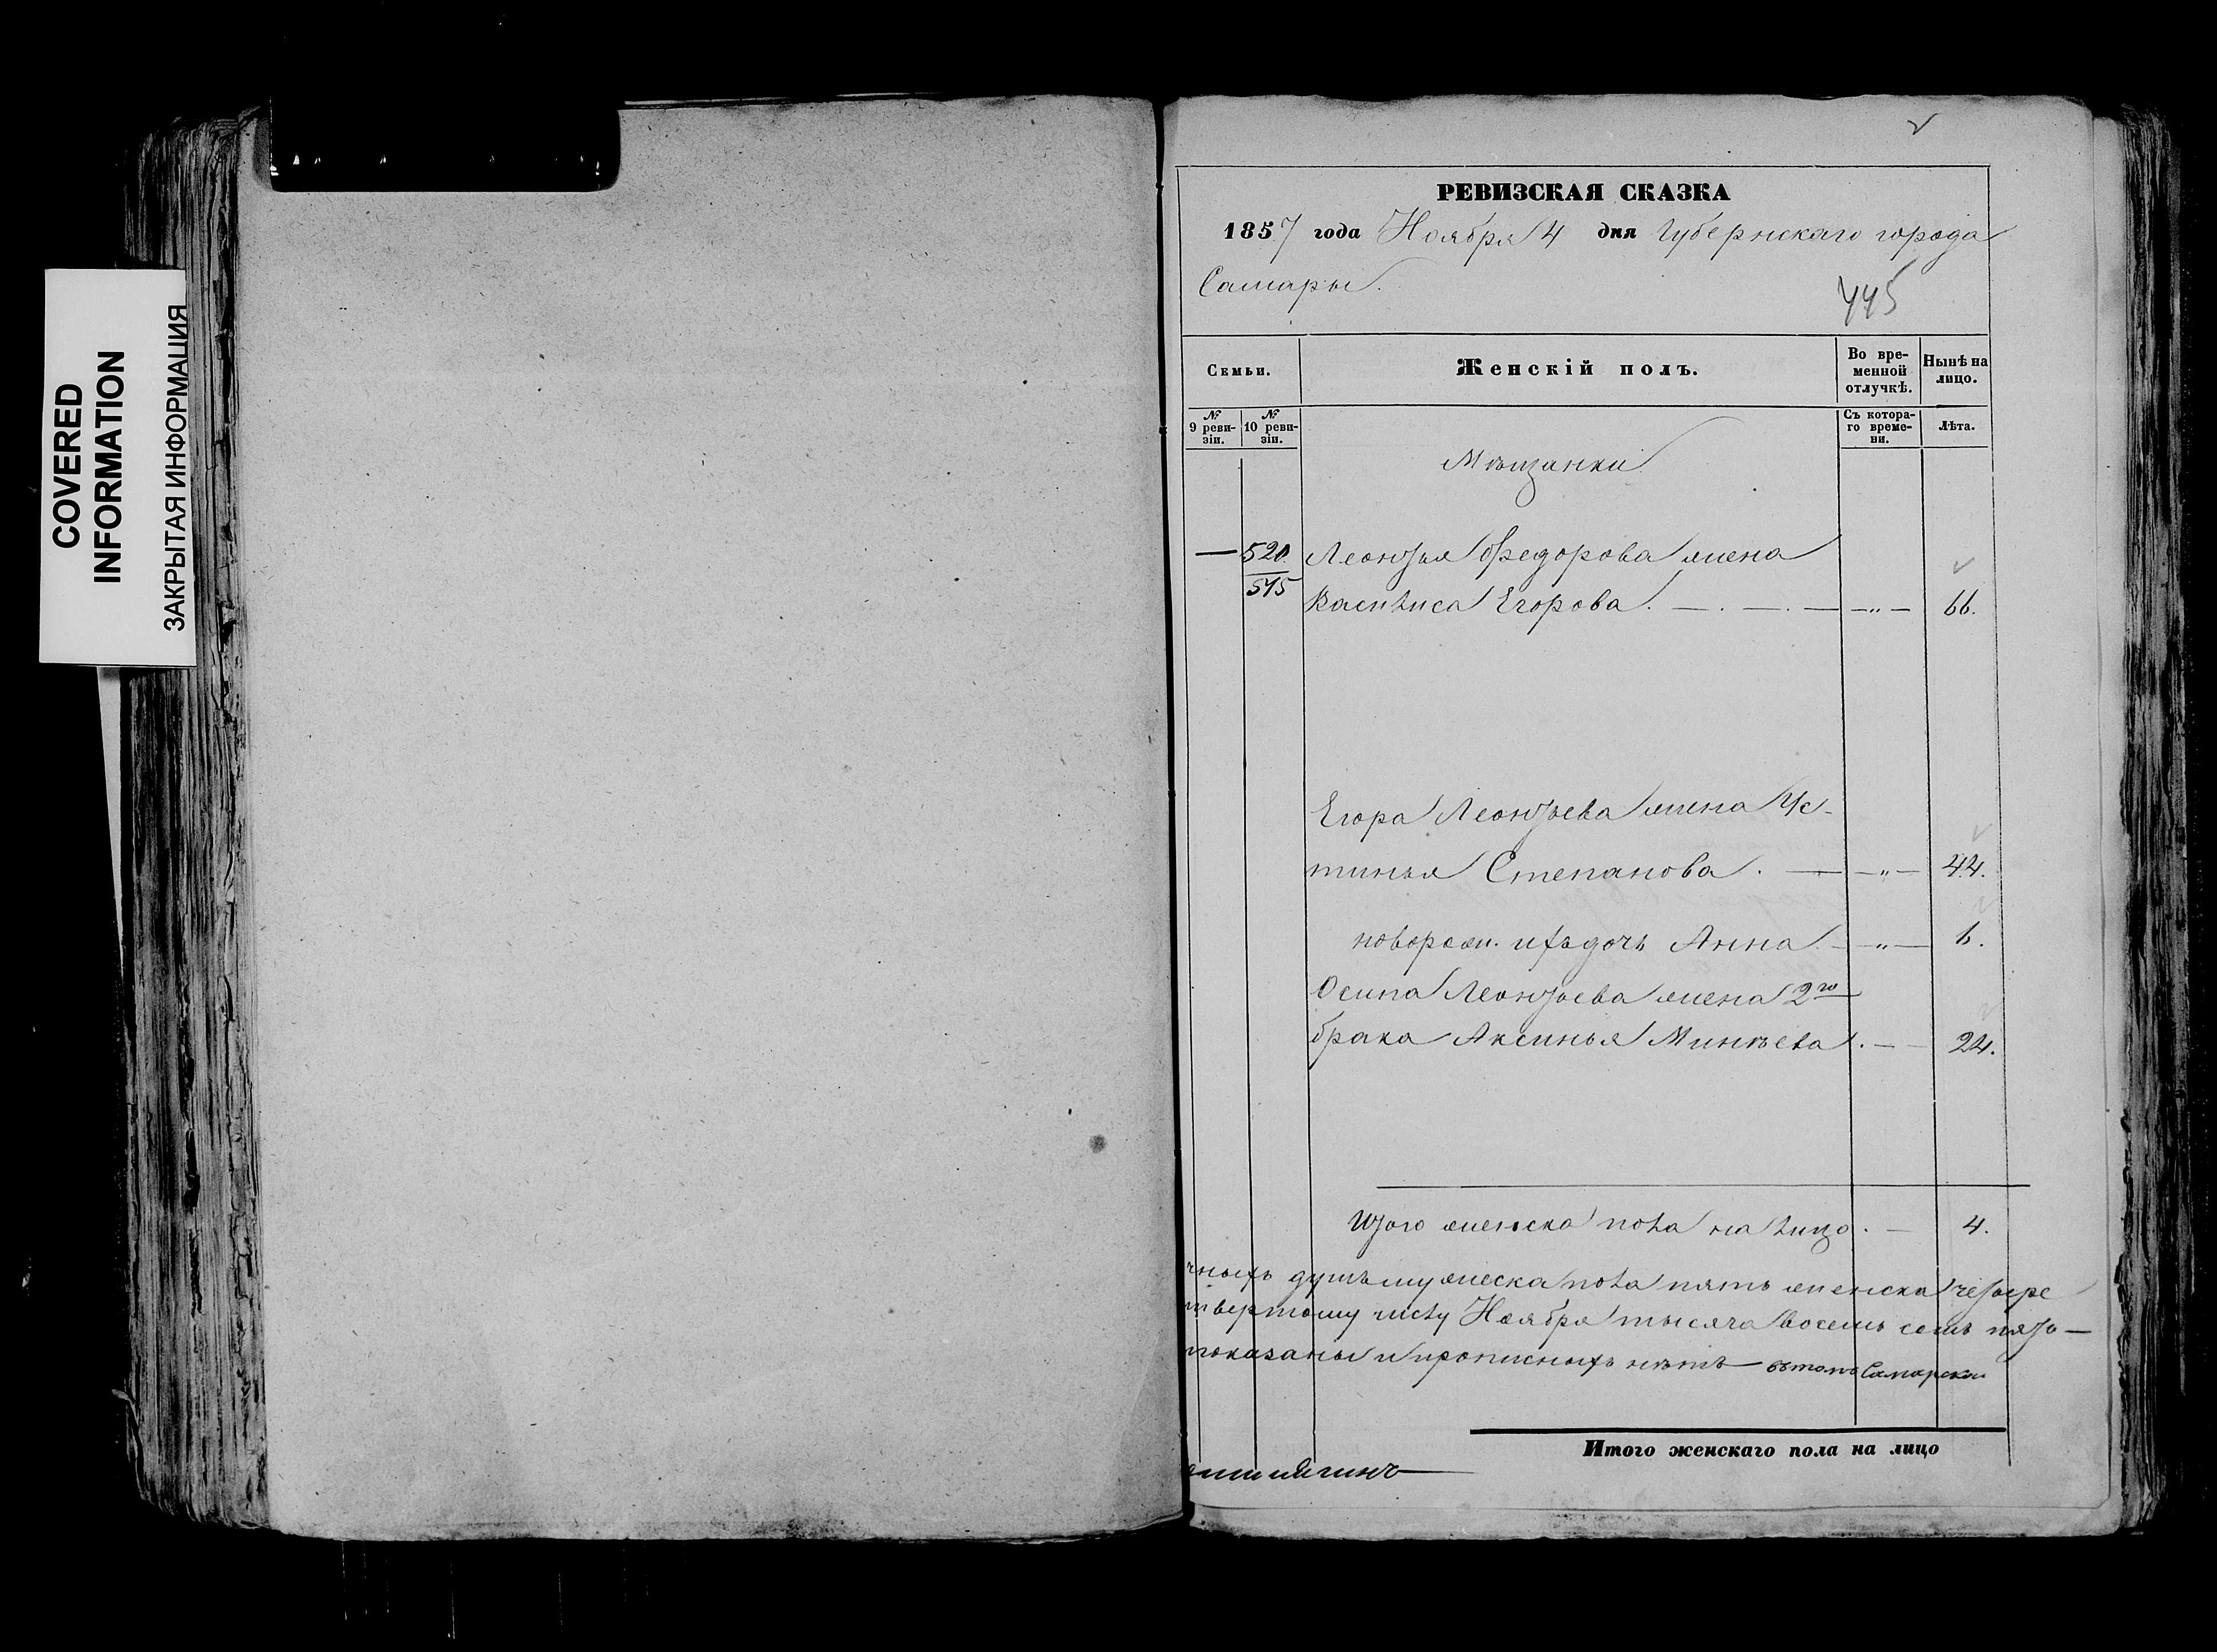 COVERED
INFORMATION
ЗАКРЫТАЯ ИНФОРМАЦИЯ
РЕВИЗСКАЯ СКАЗКА
1857 года Ноября 4 дня Губернскаго города
Самары.
445
Семьи.
Женскій полъ.
Во вре-
менной
отлучкѣ.
Нынѣ на
лицо.
№
9 реви-
зіи.
№
10 реви-
зіи.
Съ котора-
го време-
ни.
Лѣта.
Мѣщанки
— 520. Леонтья Федорова жена
515 Василиса Егорова. — . — . — — „ — 66.
Егора Леонтьева жена Ус-
тинья Степанова . — — „ — 44.
новорож. ихъ дочь Анна — „ — 6.
Осипа Леонтьева жена 2го
брака Аксинья Минѣева . — 24.
Итого женска пола на лицо . — 4.
чныхъ душъ мужеска пола пять женска четыре
твертому числу Ноября тысяча восемь сотъ пять —
показаны и прописныхъ нѣтъ — въ томъ Самарски
Итого женскаго пола на лицо